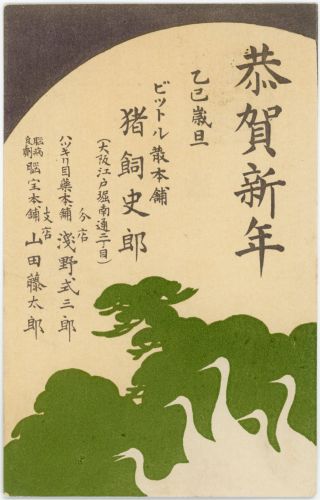 恭賀新年
乙巳歳旦
ビットル散本舗
猪飼史郎
(大阪江戸堀南通二丁目)
分店
ハッキリ目薬本舗 淺野式三郎
支店
脳病良劑 脳宝本舗 山田藤太郎